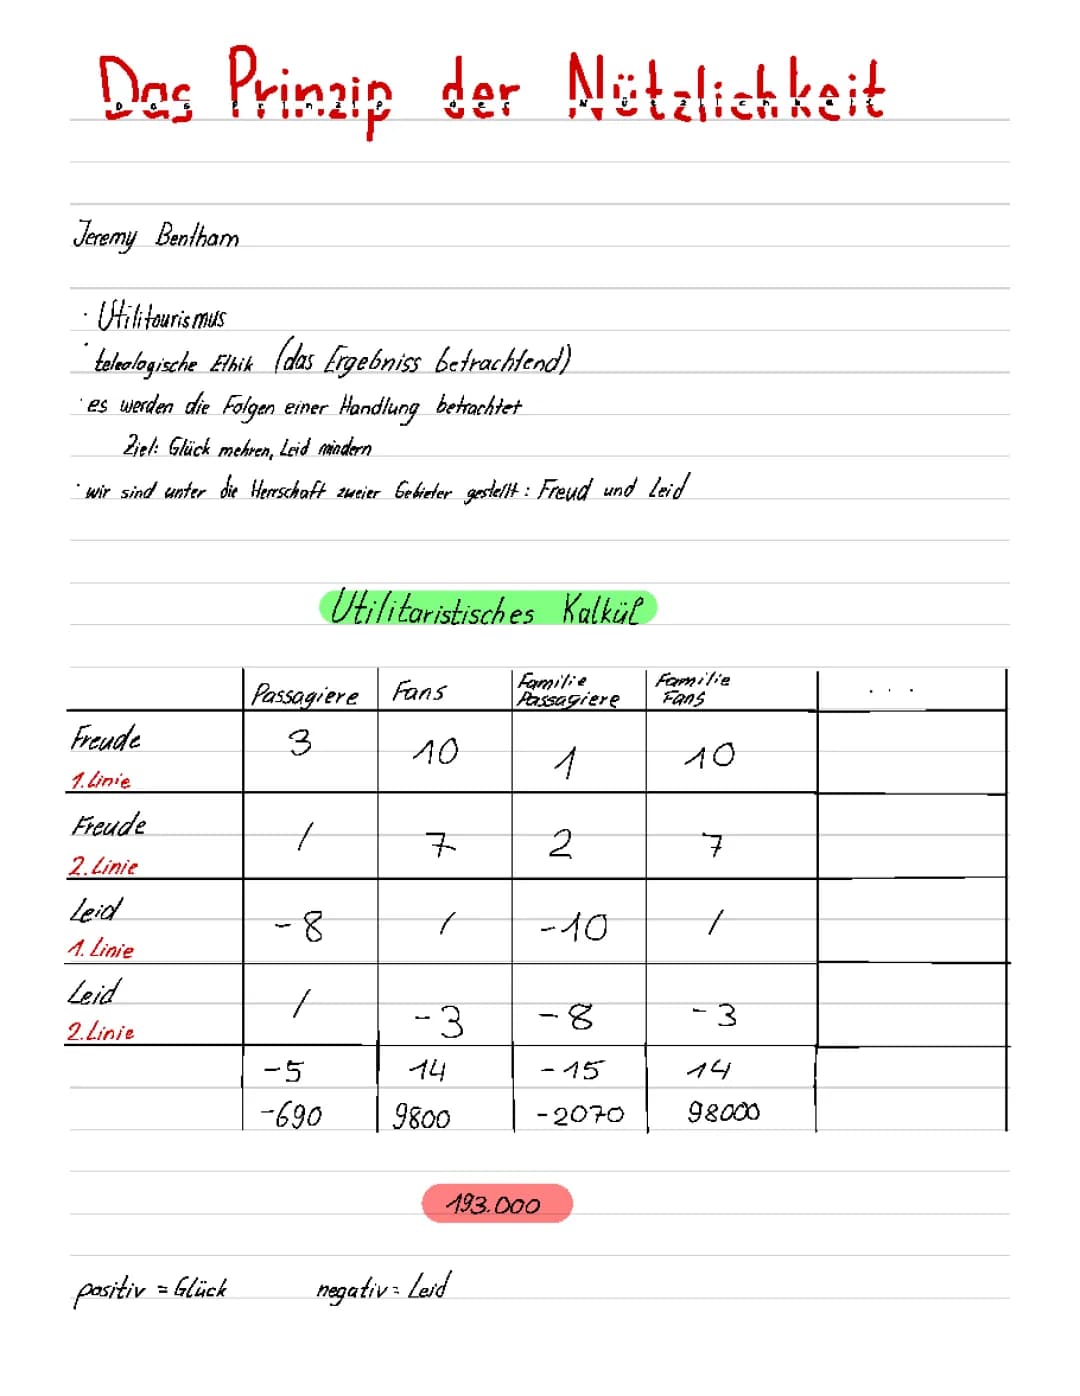 Das Prinzip der Nützlichkeit
Jeremy Bentham
· Utilitourismus
· teleologische Ethik (das Ergebniss betrachtend)
· es werden die Folgen einer Handlung betrachtet
Ziel: Glück mehren, Leid mindern
· wir sind unter die Herrschaft zweier Gebieter gestellt: Freud und Leid
Utilitaristisches Kalkül
Passagiere Fans Familie Passagiere Familie Fans ...
Freude 3 10 1 10
1. Linie
Freude / 7 2 7
2. Linie
Leid -8 / -10 /
1. Linie
Leid / -3 -8 -3
2. Linie
-5 14 -15 14
-690 9800 -2070 98000
193.000
positiv = Glück negativ = Leid